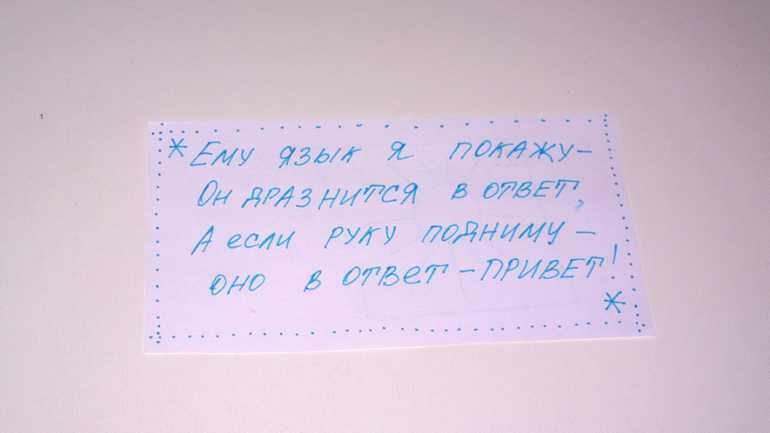 * Ему язык я покажу –
Он дразнится в ответ,
А если руку подниму –
оно в ответ – привет!
*